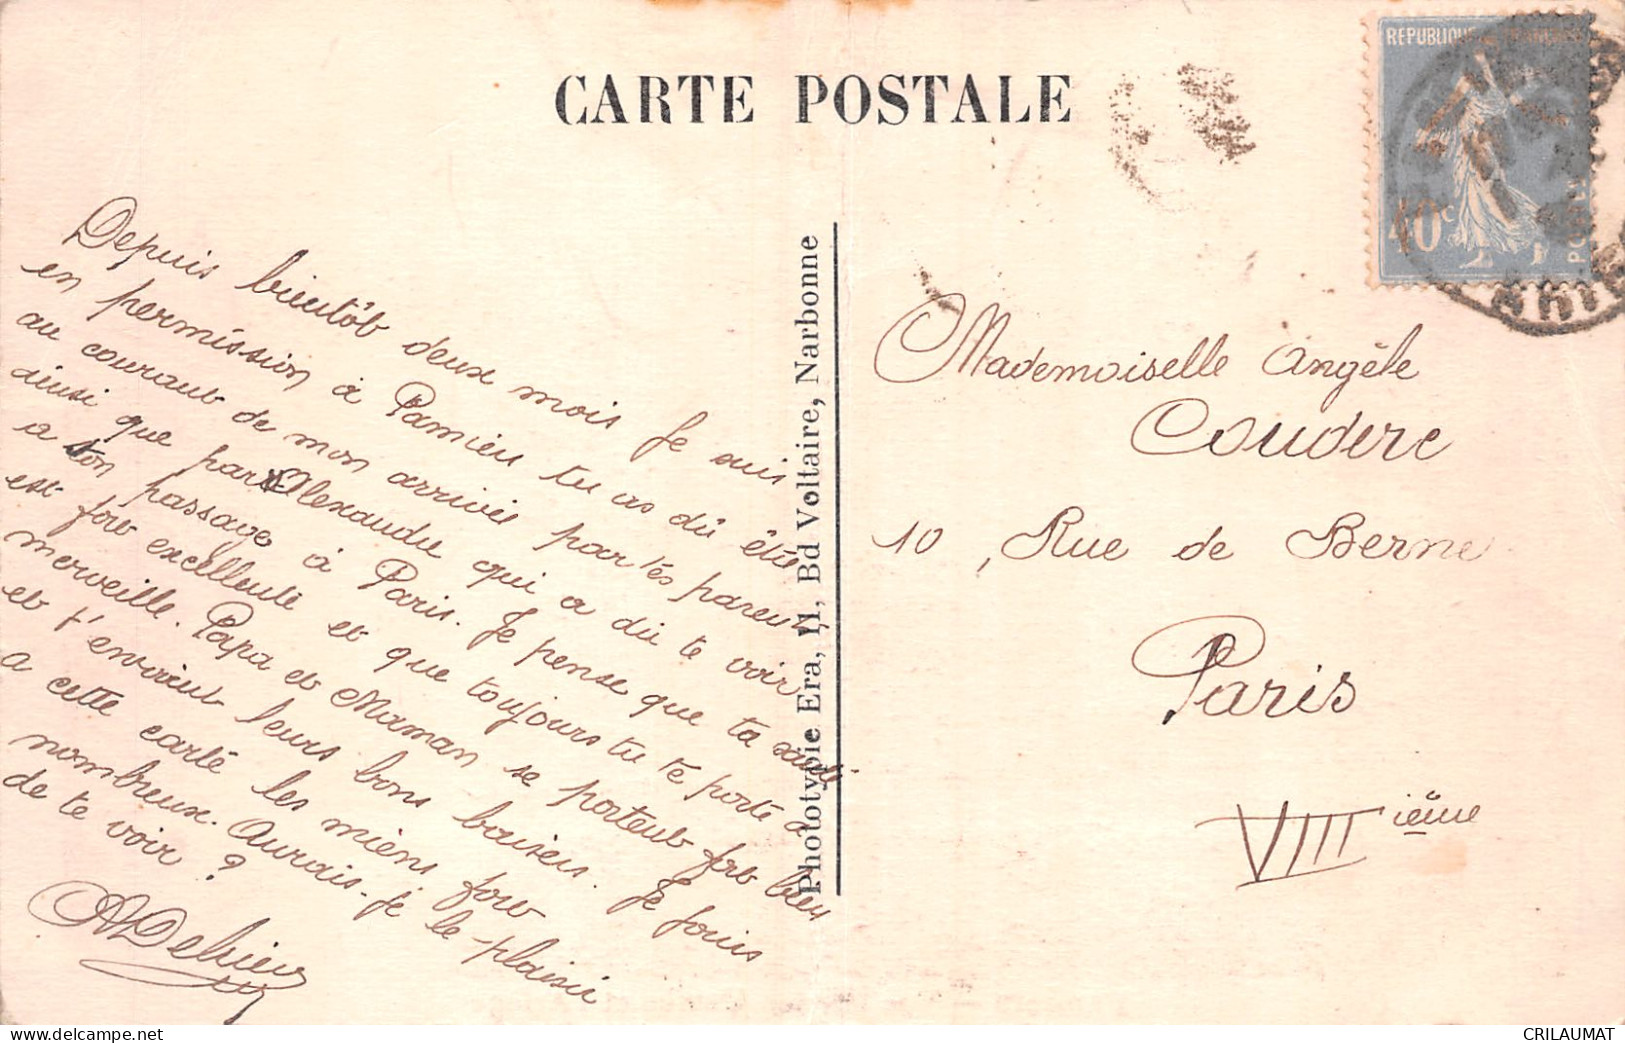 CARTE POSTALE
REPUBLIQUE FRANCAISE
40c
POSTES
Depuis bientôt deux mois je suis
en permission à Pamiers tu as dû être
au courant de mon arrivée par tes parents
ainsi que par Alexandre qui a dû te voir
a ton passage à Paris. Je pense que ta santé
est fort excellente et que toujours tu te porte à
merveille. Papa et Maman se portent fort bien
et t'envoient leurs bons baisers. Je fouis
a cette carte les miens fort
nombreux. Aurais-je le plaisir
de te voir ?
Phototypie Era, 11, Bd Voltaire, Narbonne
Mademoiselle Angèle
Couderc
10, Rue de Berne
Paris
VIIIième
www.delcampe.net
CRILAUMAT